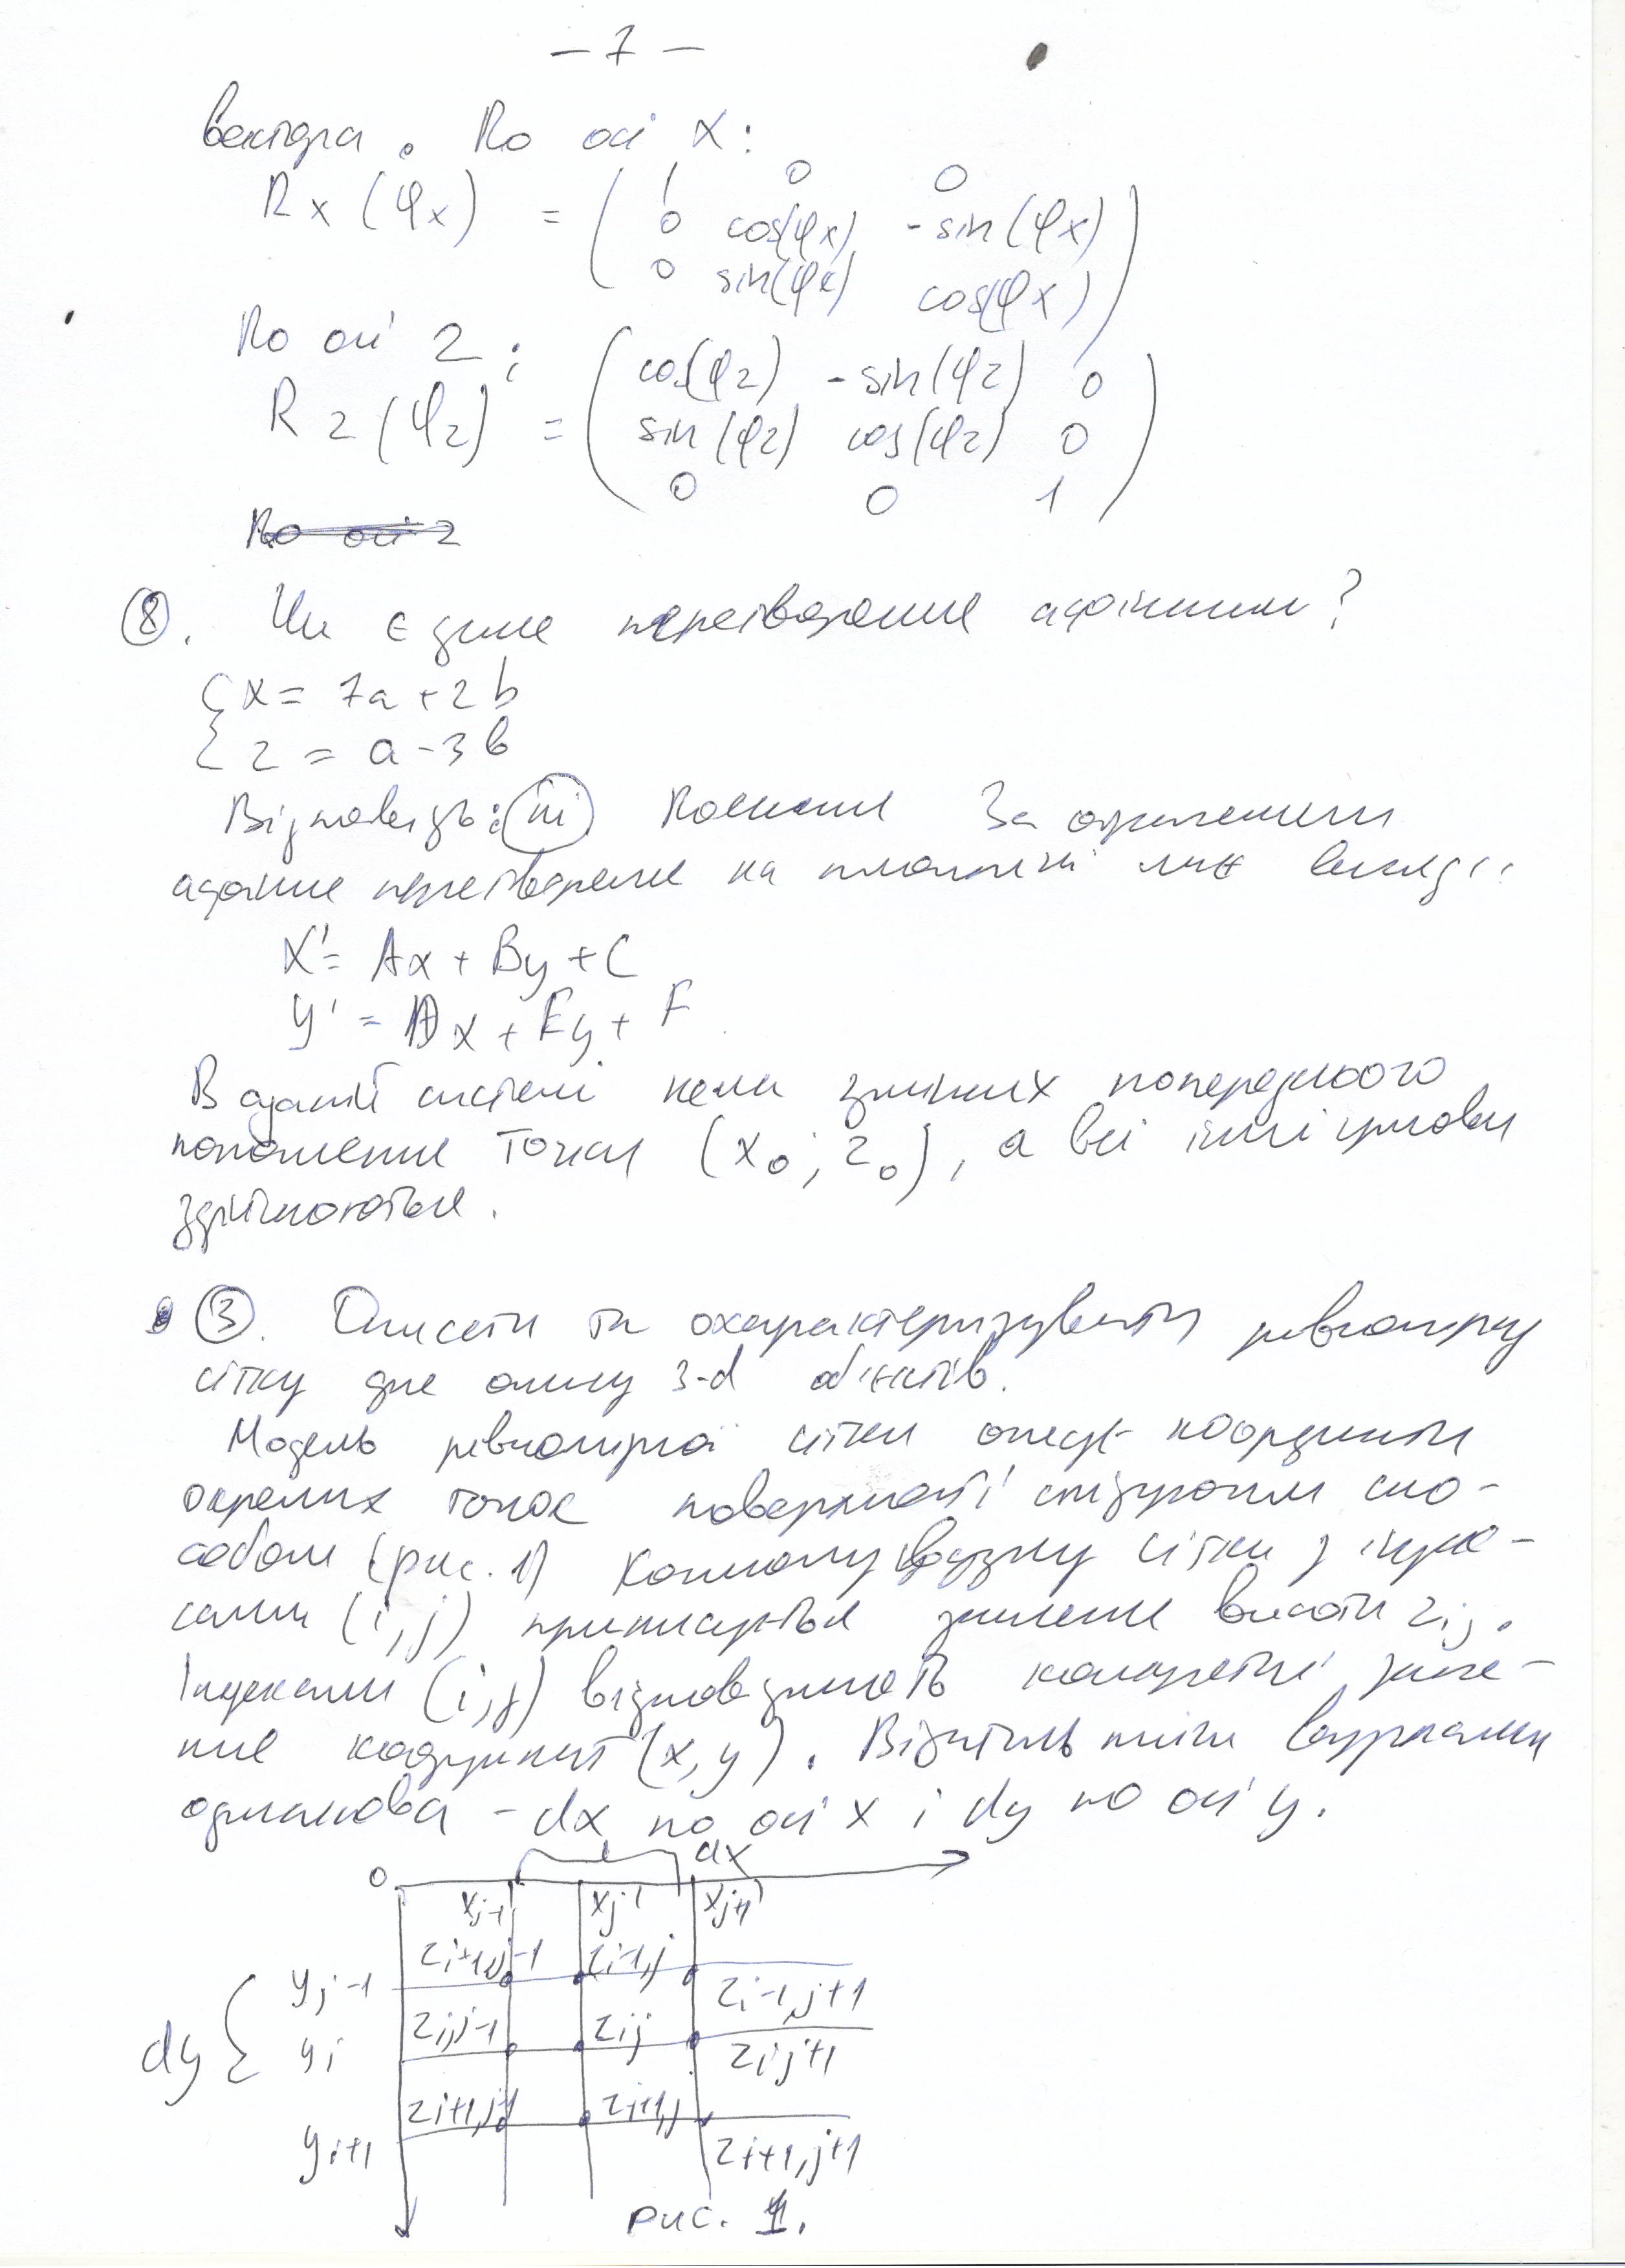 – 7 –
вектора. По осі X:
Rx(φx) = ( 1 0 0
0 cos(φx) -sin(φx)
0 sin(φx) cos(φx) )
По осі Z:
Rz(φz) = ( cos(φz) -sin(φz) 0
sin(φz) cos(φz) 0
0 0 1 )
По осі z
8. Чи є дане перетворення афінним?
{ x = 7a + 2b
{ z = a - 3b
Відповідь: ні Пояснення За означенням
афінне перетворення на площині має вигляд:
X' = Ax + By + C
y' = Dx + Ey + F
В даній системі нема змінних попереднього
положення точки (x₀; z₀), а всі інші умови
здійснюються.
3. Описати та охарактеризувати рівномірну
сітку для опису 3-d об'єктів.
Модель рівномірної сітки описує координати
окремих точок поверхності слідуючим спо-
собом (рис. 1) Кожному вузлу сітки з індек-
сами (i, j) приписується значення висоти zij.
Індексами (i, j) відповідають конкретні значе-
ння координат (x, y). Відстань між вузлами
однакова - dx по осі x і dy по осі y.
dx
0
xj-1 xj xj+1
yj-1 zi+1,j-1 zi-1,j zi-1,j+1
dy { yi zi,j-1 zij zij+1
yi+1 zi+1,j-1 zi+1,j zi+1,j+1
рис. 1.